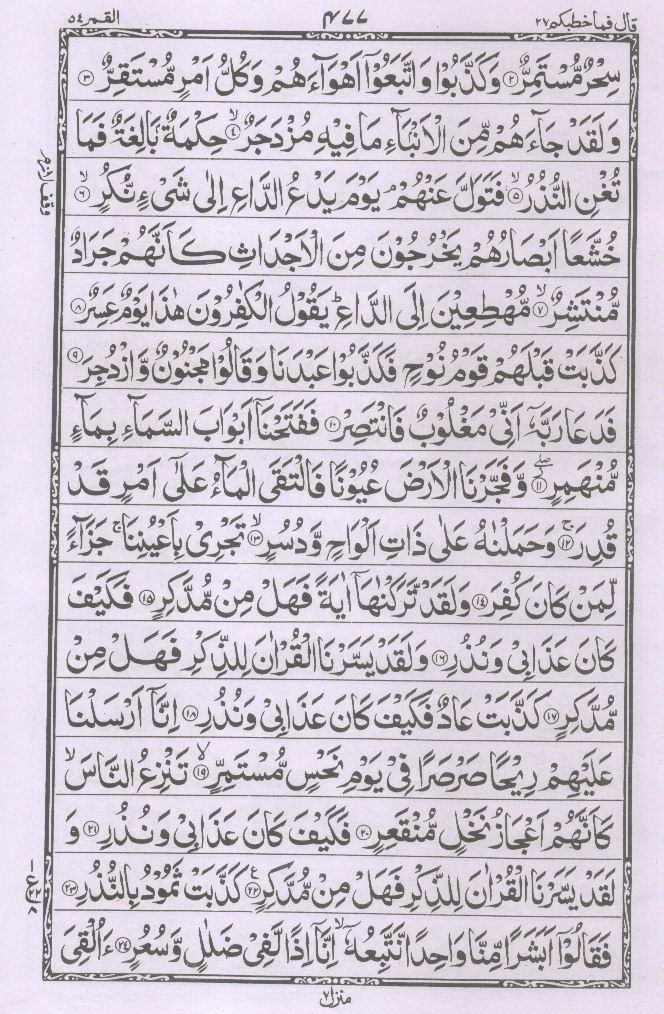 قال فما خطبكم ٢٧ ٤٧٧ القمر ٥٤
سِحْرٌ مُّسْتَمِرٌّ ﴿٢﴾ وَكَذَّبُوْا وَاتَّبَعُوْٓا اَهْوَآءَهُمْ وَكُلُّ اَمْرٍ مُّسْتَقِرٌّ ﴿٣﴾
وَلَقَدْ جَآءَهُمْ مِّنَ الْاَنْۢبَآءِ مَا فِيْهِ مُزْدَجَرٌ ﴿٤﴾ حِكْمَةٌۢ بَالِغَةٌ فَمَا
تُغْنِ النُّذُرُ ﴿٥﴾ فَتَوَلَّ عَنْهُمْ ۘ يَوْمَ يَدْعُ الدَّاعِ اِلٰى شَىْءٍ نُّكُرٍ ﴿٦﴾
خُشَّعًا اَبْصَارُهُمْ يَخْرُجُوْنَ مِنَ الْاَجْدَاثِ كَاَنَّهُمْ جَرَادٌ
مُّنْتَشِرٌ ﴿٧﴾ مُّهْطِعِيْنَ اِلَى الدَّاعِ ؕ يَقُوْلُ الْكٰفِرُوْنَ هٰذَا يَوْمٌ عَسِرٌ ﴿٨﴾
كَذَّبَتْ قَبْلَهُمْ قَوْمُ نُوْحٍ فَكَذَّبُوْا عَبْدَنَا وَقَالُوْا مَجْنُوْنٌ وَّازْدُجِرَ ﴿٩﴾
فَدَعَا رَبَّهٗٓ اَنِّىْ مَغْلُوْبٌ فَانْتَصِرْ ﴿١٠﴾ فَفَتَحْنَآ اَبْوَابَ السَّمَآءِ بِمَآءٍ
مُّنْهَمِرٍ ﴿١١﴾ وَّفَجَّرْنَا الْاَرْضَ عُيُوْنًا فَالْتَقَى الْمَآءُ عَلٰٓى اَمْرٍ قَدْ
قُدِرَ ﴿١٢﴾ وَحَمَلْنٰهُ عَلٰى ذَاتِ اَلْوَاحٍ وَّدُسُرٍ ﴿١٣﴾ تَجْرِىْ بِاَعْيُنِنَا ۚ جَزَآءً
لِّمَنْ كَانَ كُفِرَ ﴿١٤﴾ وَلَقَدْ تَّرَكْنٰهَآ اٰيَةً فَهَلْ مِنْ مُّدَّكِرٍ ﴿١٥﴾ فَكَيْفَ
كَانَ عَذَابِىْ وَنُذُرِ ﴿١٦﴾ وَلَقَدْ يَسَّرْنَا الْقُرْاٰنَ لِلذِّكْرِ فَهَلْ مِنْ
مُّدَّكِرٍ ﴿١٧﴾ كَذَّبَتْ عَادٌ فَكَيْفَ كَانَ عَذَابِىْ وَنُذُرِ ﴿١٨﴾ اِنَّآ اَرْسَلْنَا
عَلَيْهِمْ رِيْحًا صَرْصَرًا فِىْ يَوْمِ نَحْسٍ مُّسْتَمِرٍّ ﴿١٩﴾ تَنْزِعُ النَّاسَ ۙ
كَاَنَّهُمْ اَعْجَازُ نَخْلٍ مُّنْقَعِرٍ ﴿٢٠﴾ فَكَيْفَ كَانَ عَذَابِىْ وَنُذُرِ ﴿٢١﴾ وَ
لَقَدْ يَسَّرْنَا الْقُرْاٰنَ لِلذِّكْرِ فَهَلْ مِنْ مُّدَّكِرٍ ﴿٢٢﴾ كَذَّبَتْ ثَمُوْدُ بِالنُّذُرِ ﴿٢٣﴾
فَقَالُوْٓا اَبَشَرًا مِّنَّا وَاحِدًا نَّتَّبِعُهٗٓ ۙ اِنَّآ اِذًا لَّفِىْ ضَلٰلٍ وَّسُعُرٍ ﴿٢٤﴾ ءَاُلْقِىَ
منزل ٧
وقف لازم